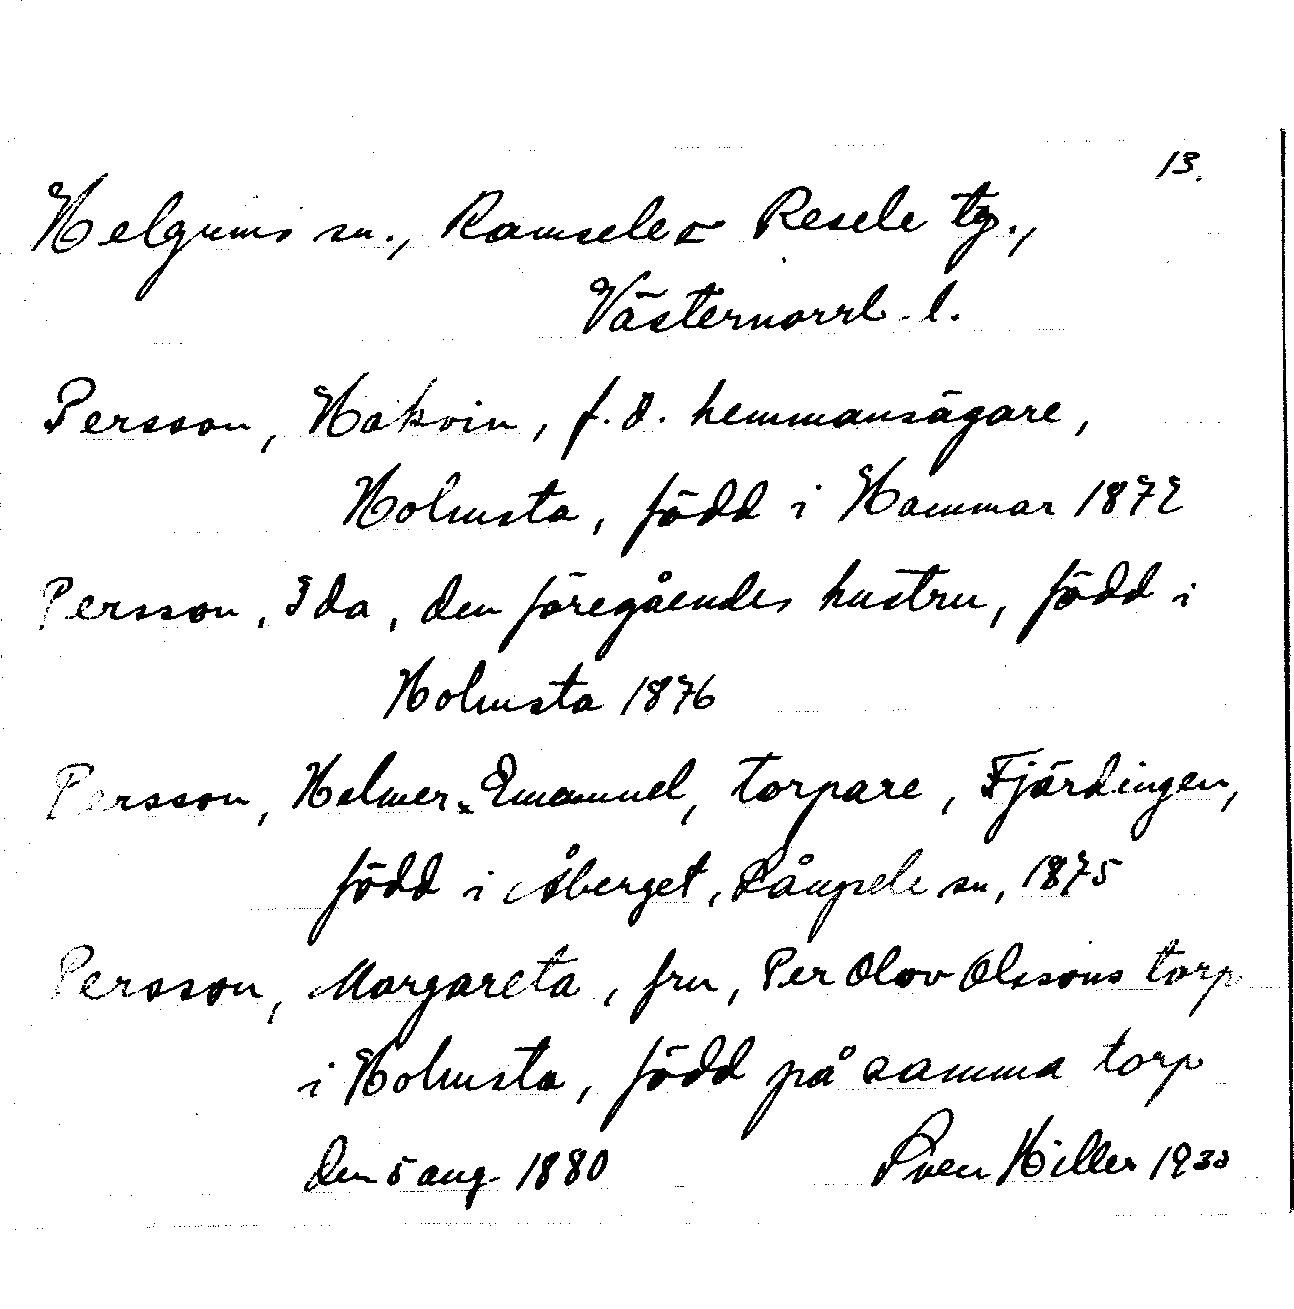 13.
Helgums sn., Ramsele o Resele tg.,
Västernorrl. l.
Persson, Hakvin, f.d. hemmansägare,
Holmsta, född i Hammar 1872
Persson, Ida, den föregåendes hustru, född i
Holmsta 1876
Persson, Helmer Emanuel, torpare, Fjärdingen,
född i Åberget, Långsele sn, 1875
Persson, Margareta, fru, Per Olov Olssons torp
i Holmsta, född på samma torp
den 5 aug. 1880 Sven Hiller 1933